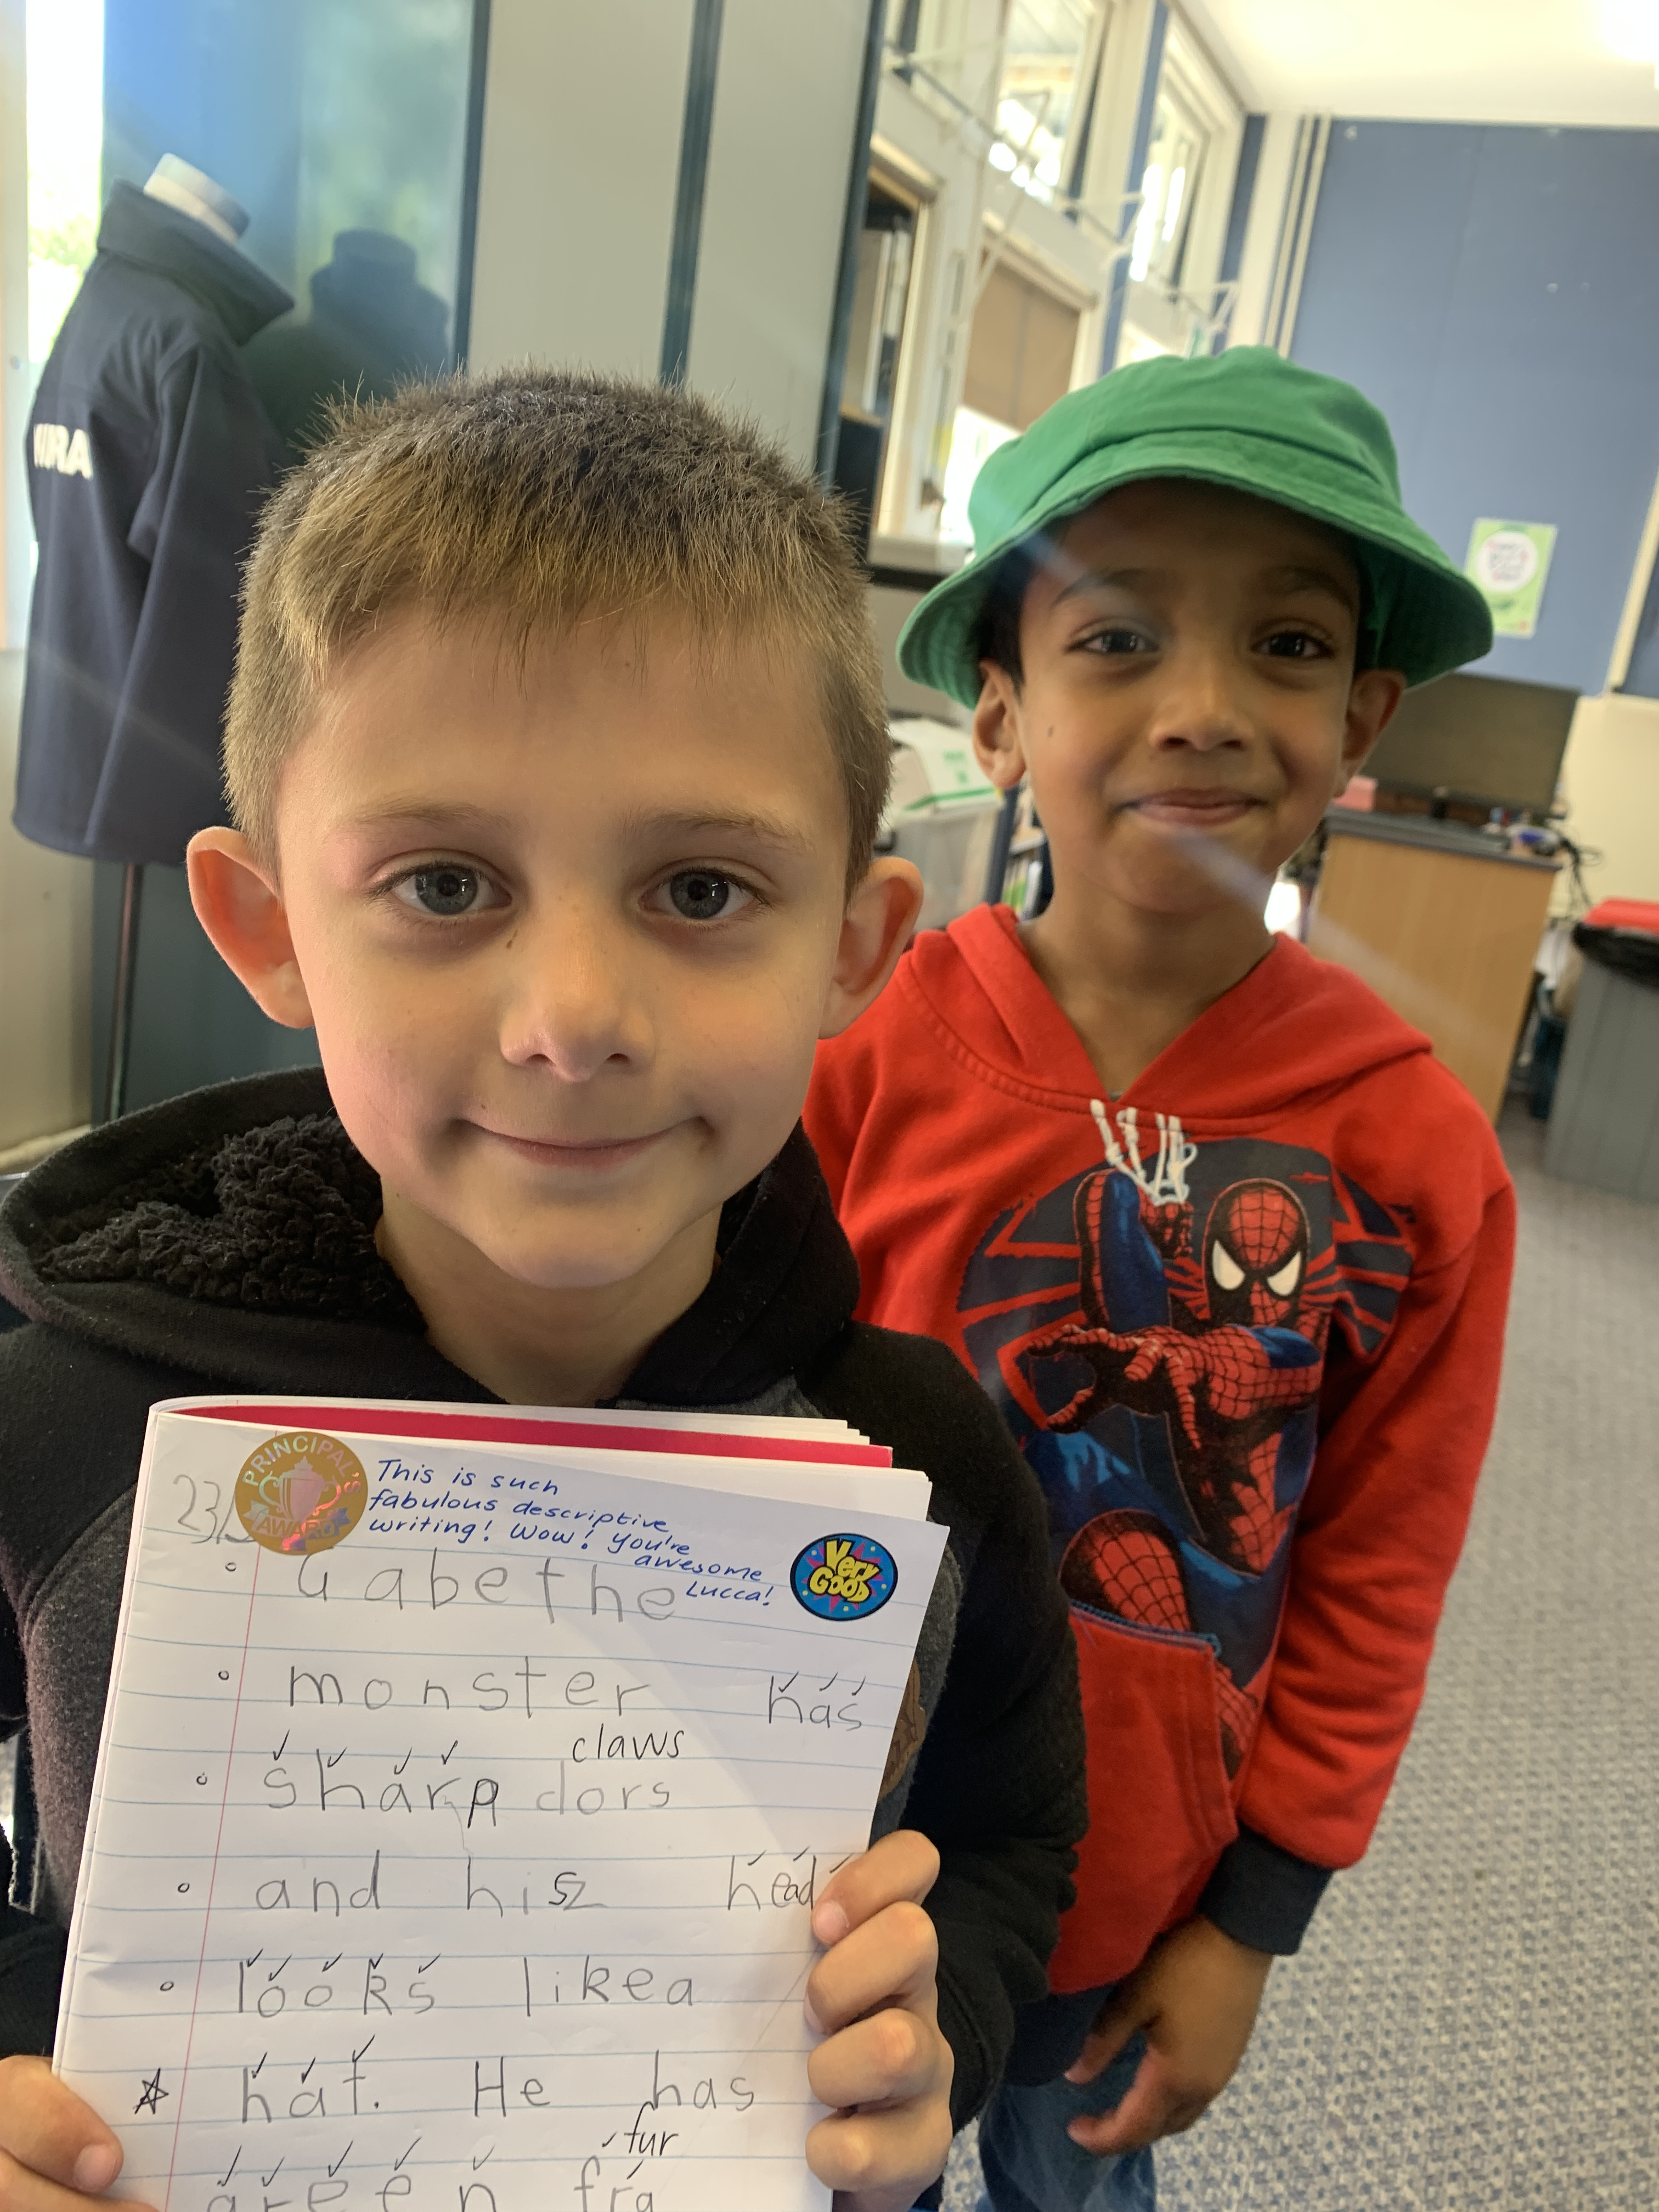 PRINCIPAL'S
AWARD
This is such
fabulous descriptive
writing! Wow! You're
awesome
Lucca!
Very
GOOD
23/
Gabethe
monster has
claws
sharp dors
and hisz head
looks likea
hat. He has
fur
green fra